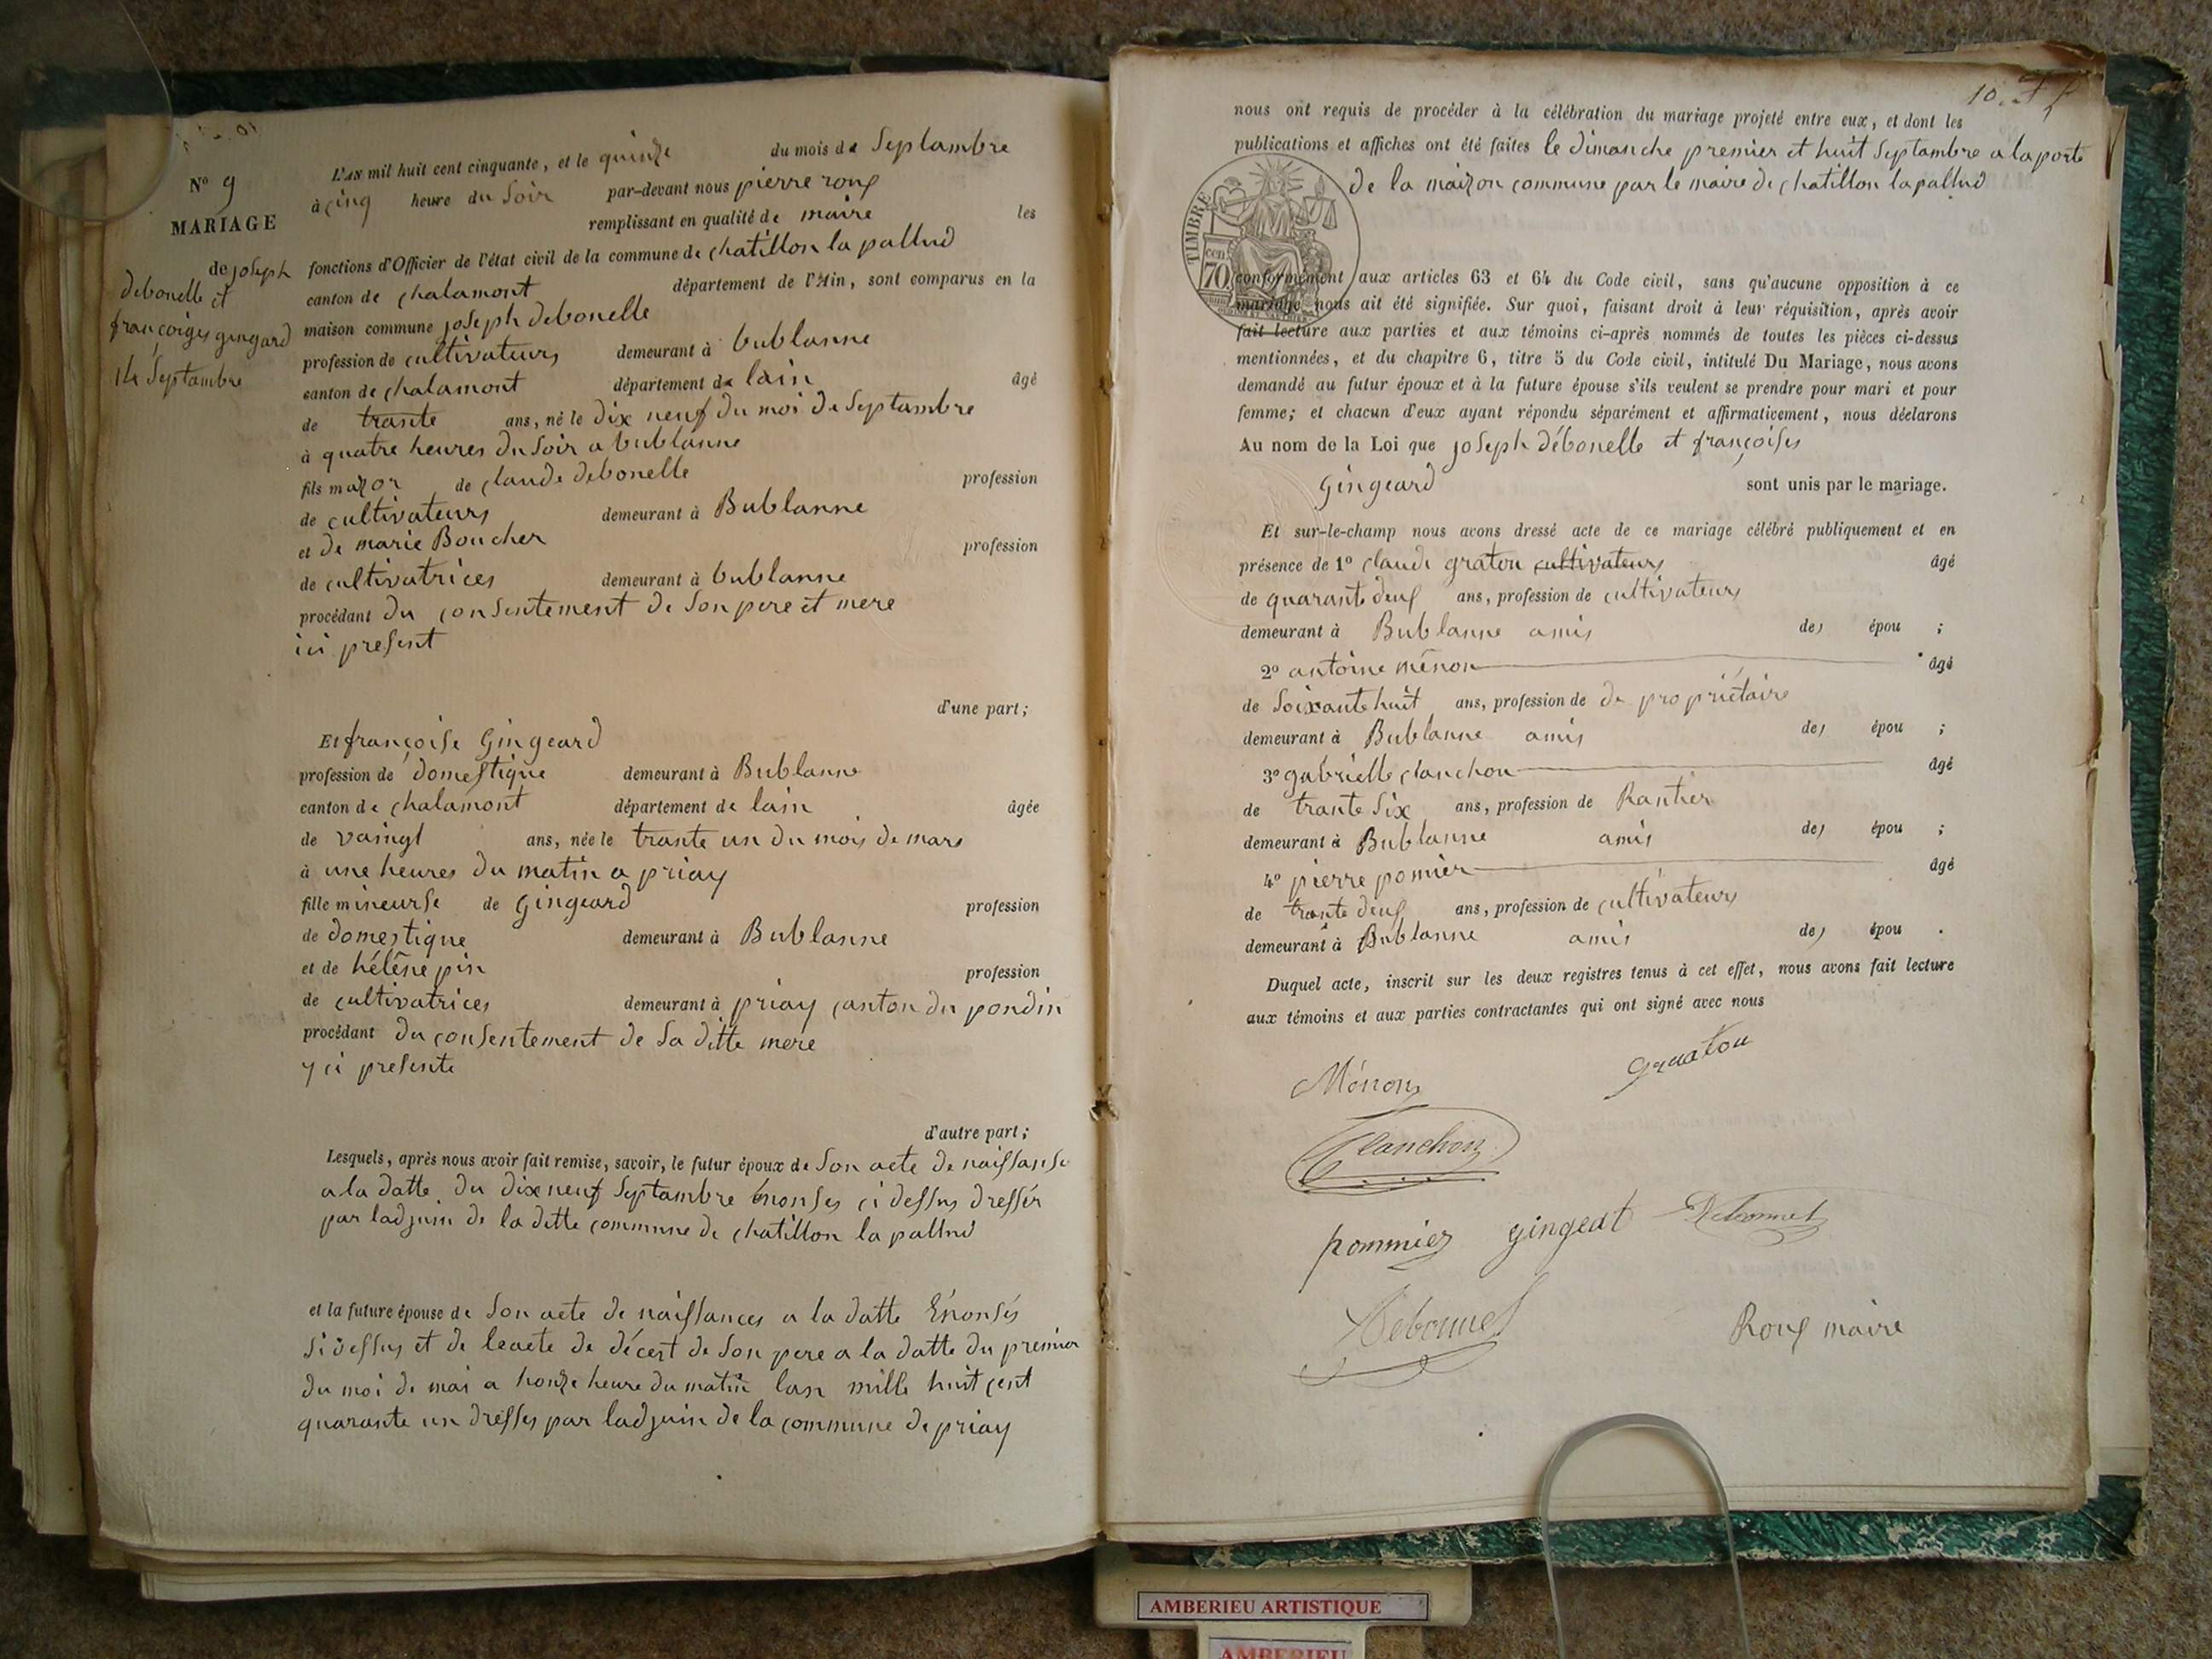 N° 9
MARIAGE
de joseph
debonelle et
françoises gingeard
14 Septambre
L'AN mil huit cent cinquante, et le quinze du mois de Septambre
à cinq heure du Soir par-devant nous pierre rouf
remplissant en qualité de maire les
fonctions d'Officier de l'état civil de la commune de chatillon la pallud
canton de chalamont département de l'Ain, sont comparus en la
maison commune joseph debonelle
profession de cultivateurs demeurant à bublanne
canton de chalamont département de lain âgé
de trante ans, né le dix neuf du moi de Septambre
à quatre heures du Soir a bublanne
fils mazor de claude debonelle profession
de cultivateurs demeurant à Bublanne
et de marie Boucher profession
de cultivatrices demeurant à bublanne
procédant du consentement de Son pere et mere
ici present
d'une part;
Et françoise Gingeard
profession de domestique demeurant à Bublanne
canton de chalamont département de lain âgée
de vaingt ans, née le trante un du mois de mars
à une heures du matin a priay
fille mineurse de Gingeard profession
de domestique demeurant à Bublanne
et de hélêne pin profession
de cultivatrices demeurant à priay canton du pondin
procédant du consentement de Sa ditte mere
y ci presente
d'autre part;
Lesquels, après nous avoir fait remise, savoir, le futur époux de Son acte de naissanse
a la datte du dix neuf Septambre énonses ci dessus dressér
par ladjuin de la ditte commune de chatillon la pallud
et la future épouse de Son acte de naissances a la datte Enonsés
Si dessus et de leacte de décert de Son pere a la datte du premier
du moi de mai a honze heure du matin lan mille huit cent
quarante un dresses par ladjuin de la commune de priay
10.
nous ont requis de procéder à la célébration du mariage projeté entre eux, et dont les
publications et affiches ont été faites le dimanche premier et huit Septambre a la porte
de la maizon commune par le maire de chatillon la pallud
TIMBRE
70 cen
conformément aux articles 63 et 64 du Code civil, sans qu'aucune opposition à ce
mariage nous ait été signifiée. Sur quoi, faisant droit à leur réquisition, après avoir
fait lecture aux parties et aux témoins ci-après nommés de toutes les pièces ci-dessus
mentionnées, et du chapitre 6, titre 5 du Code civil, intitulé Du Mariage, nous avons
demandé au futur époux et à la future épouse s'ils veulent se prendre pour mari et pour
femme; et chacun d'eux ayant répondu séparément et affirmativement, nous déclarons
Au nom de la Loi que joseph débonelle et françoises
Gingeard sont unis par le mariage.
Et sur-le-champ nous avons dressé acte de ce mariage célébré publiquement et en
présence de 1° claude graton cultivateurs âgé
de quarante deuf ans, profession de cultivateurs
demeurant à Bublanne amis des épou ;
2° antoine ménon âgé
de Soixante huit ans, profession de de propriétaire
demeurant à Bublanne amis des épou ;
3° gabrielle clanchon âgé
de trante Six ans, profession de Rantier
demeurant à Bublanne amis des épou ;
4° pierre pomier âgé
de trante deuf ans, profession de cultivateurs
demeurant à Bublanne amis des épou .
Duquel acte, inscrit sur les deux registres tenus à cet effet, nous avons fait lecture
aux témoins et aux parties contractantes qui ont signé avec nous
Ménon
Clanchon
pommier gingeat Debonnel
Debonnel
Rouf maire
AMBERIEU ARTISTIQUE
AMBERIEU